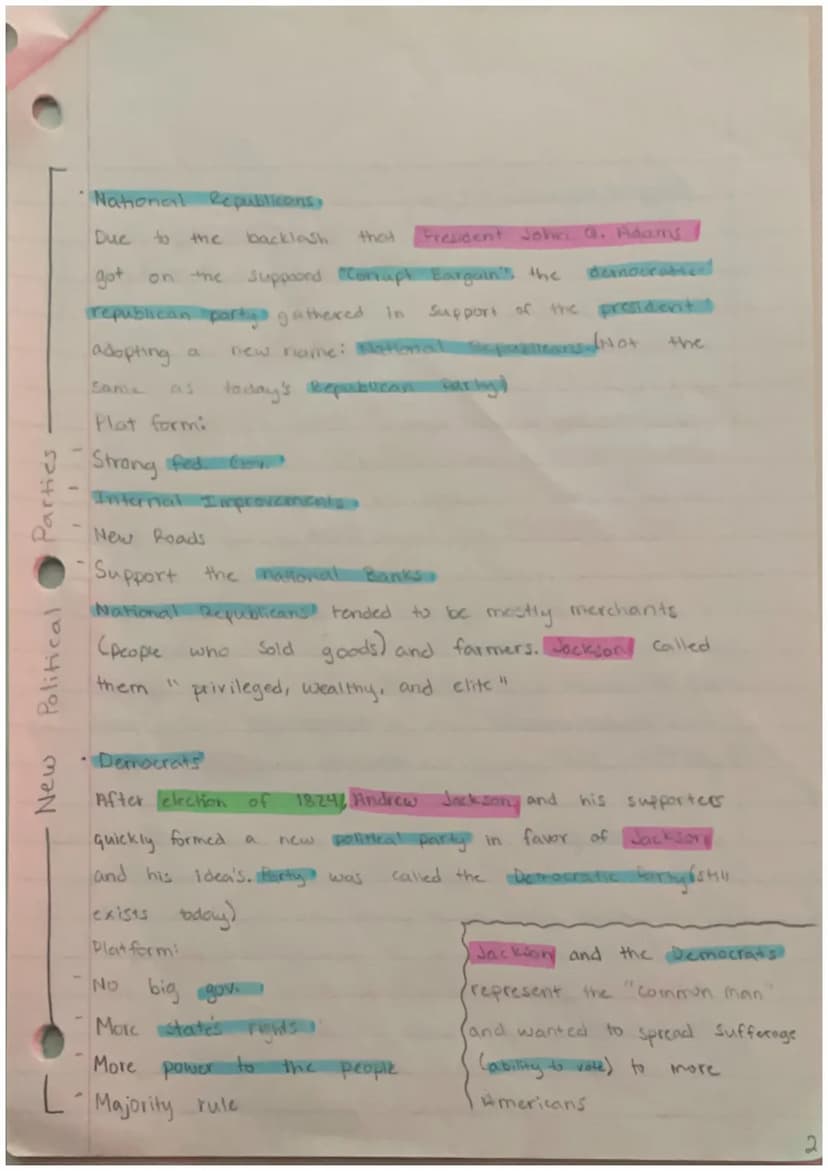 New Political Parties
· National Republicans:
Due to the backlash that President John Q. Adams
got on the supposed "Corrupt Bargain", the democratic
republican party gathered in support of the president
adopting a new name: National Republicans. (Not the
same as today's Republican Party)
Plat form:
- Strong fed. Gov.
- Internal Improvements
- New Roads
- Support the national Banks
National Republicans tended to be mostly merchants
(people who sold goods) and farmers. Jackson called
them "privileged, wealthy, and elite"
· Democrats
After election of 1824, Andrew Jackson and his supporters
quickly formed a new political party in favor of Jackson
and his Idea's. Party was called the Democratic Party (still
exists today)
Platform:
- No big gov.
- More state's rights
- More power to the people
- Majority rule
Jackson and the Democrats
represent the "common man"
and wanted to spread Sufferage
(ability to vote) to more
Americans
2